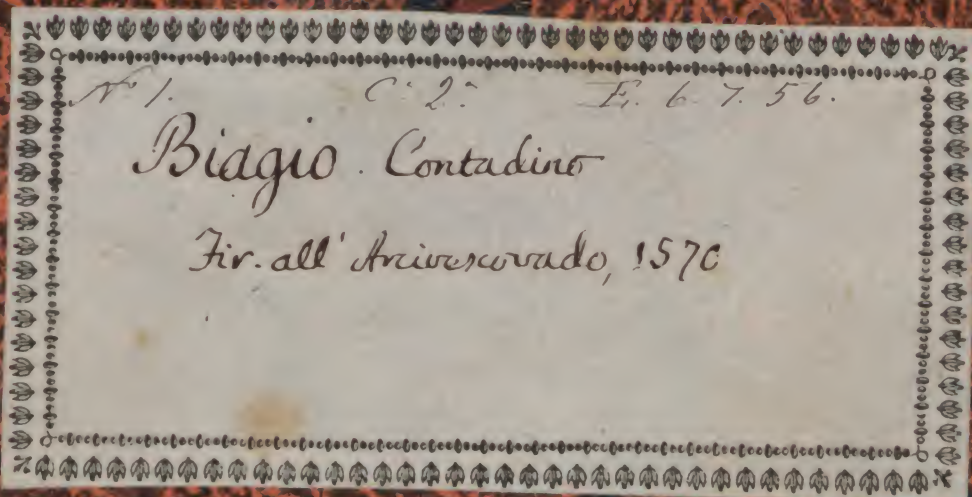 No 1. C. 2. E. 6. 7. 56.
Biagio Contadino
Fir. all' Arcivescovado, 1570